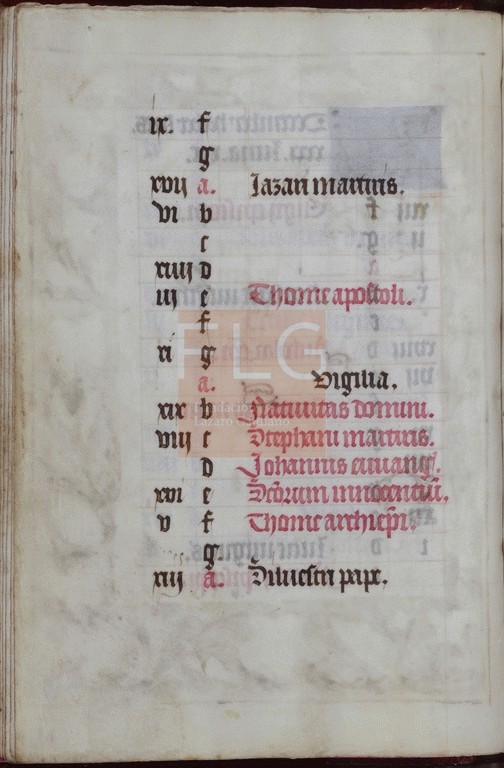 ix. f
g
xvij a. Lazari martiris.
vi b
c
xiiij d
iij e Thome apostoli.
f
xi g
a. Vigilia.
xix b Nativitas domini.
viij c Stephani martiris.
d Johannis euuang.
xvi e Scorum innocenciu.
v f Thome archiepi.
g.
xiij a. Siluestri pape.
FLG
Fundación
Lázaro Galdiano